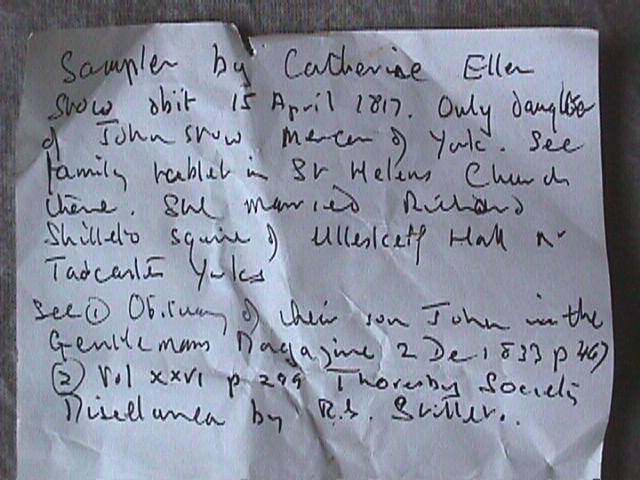 Sampler by Catherine Ellen
Snow obit 15 April 1817. Only daughter
of John Snow Mercer of York. See
family tablet in St Helens Church
there. She married Richard
Shilleto Squire of Ulleskelf Hall nr
Tadcaster Yorks
See ① Obituary of their son John in the
Gentlemans Magazine 2 De 1833 p 467
② Vol XXVI p 299 Thoresby Society
Miscellanea by R.S.